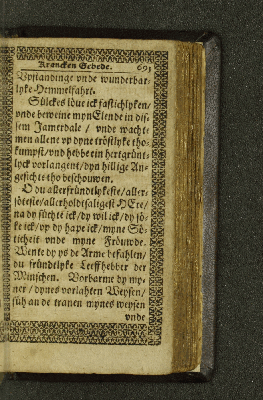 Krancken Gebede. 693
Vpstandinge vnde wunderbar-
lyke Hemmelfahrt.
Sülckes löue ick fastichlyken/
vnde beweine myn Elende in dis-
sem Jamerdale / vnde wacht-
men allene vp dyne tröstlyke tho-
kumpst/vnd hebbe ein hertgrünt-
lyck vorlangent/dyn hillige An-
gesichte tho beschouwen.
O du allerfründtlykeste/aller-
söteste/allerholdtsaligest HEre/
na dy süchte ick/dy wil ick/dy sö-
ke ick/vp dy hape ick/myne Sö-
ticheit vnde myne Fröuwde.
Wente dy ys de Arme befahlen/
du fründtlyke Leeffhebber der
Minschen. Vorbarme dy my-
ner / dynes vorlahten Weysen/
süh an de tranen mynes weysen
vnde